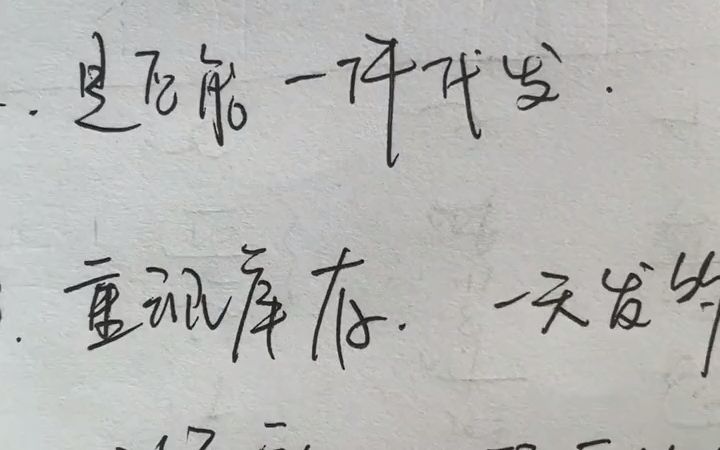 是否能一件代发.
重视库存. 一天发